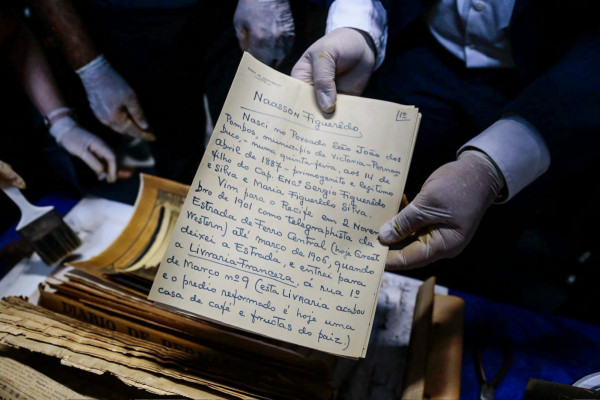 1º
Naasson Figueirêdo.
Nasci no Povoado São João dos
Pombos, municipio de Victoria-Pernam
buco, - numa quinta-feira, aos 14 de
abril de 1887 - primogenito e legitimo
filho do Cap. Engº Sergio Figueirêdo
e Silva e Maria Figueirêdo Silva.
Vim para o Recife em 2 Novem
bro de 1901 como telegraphista da
Estrada de Ferro Central (hoje Great
Western) até março de 1906, quando
deixei a Estrada, e entrei para
a Livraria Franceza, á rua 1º
de Março nº 9 (esta Livraria acabou
e o predio reformado é hoje uma
casa de café e fructas do paiz.)
DIARIO DE